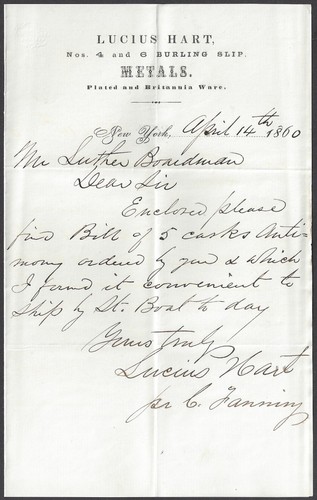 LUCIUS HART,
Nos. 4 and 6 BURLING SLIP.
METALS.
Plated and Britannia Ware.
New York, April 14th 1860
Mr Luther Boardman
Dear Sir
Enclosed please
find Bill of 5 casks Anti=
mony ordered by you & which
I found it convenient to
ship by St. Boat to day
Yours truly
Lucius Hart
pr C. Fanning